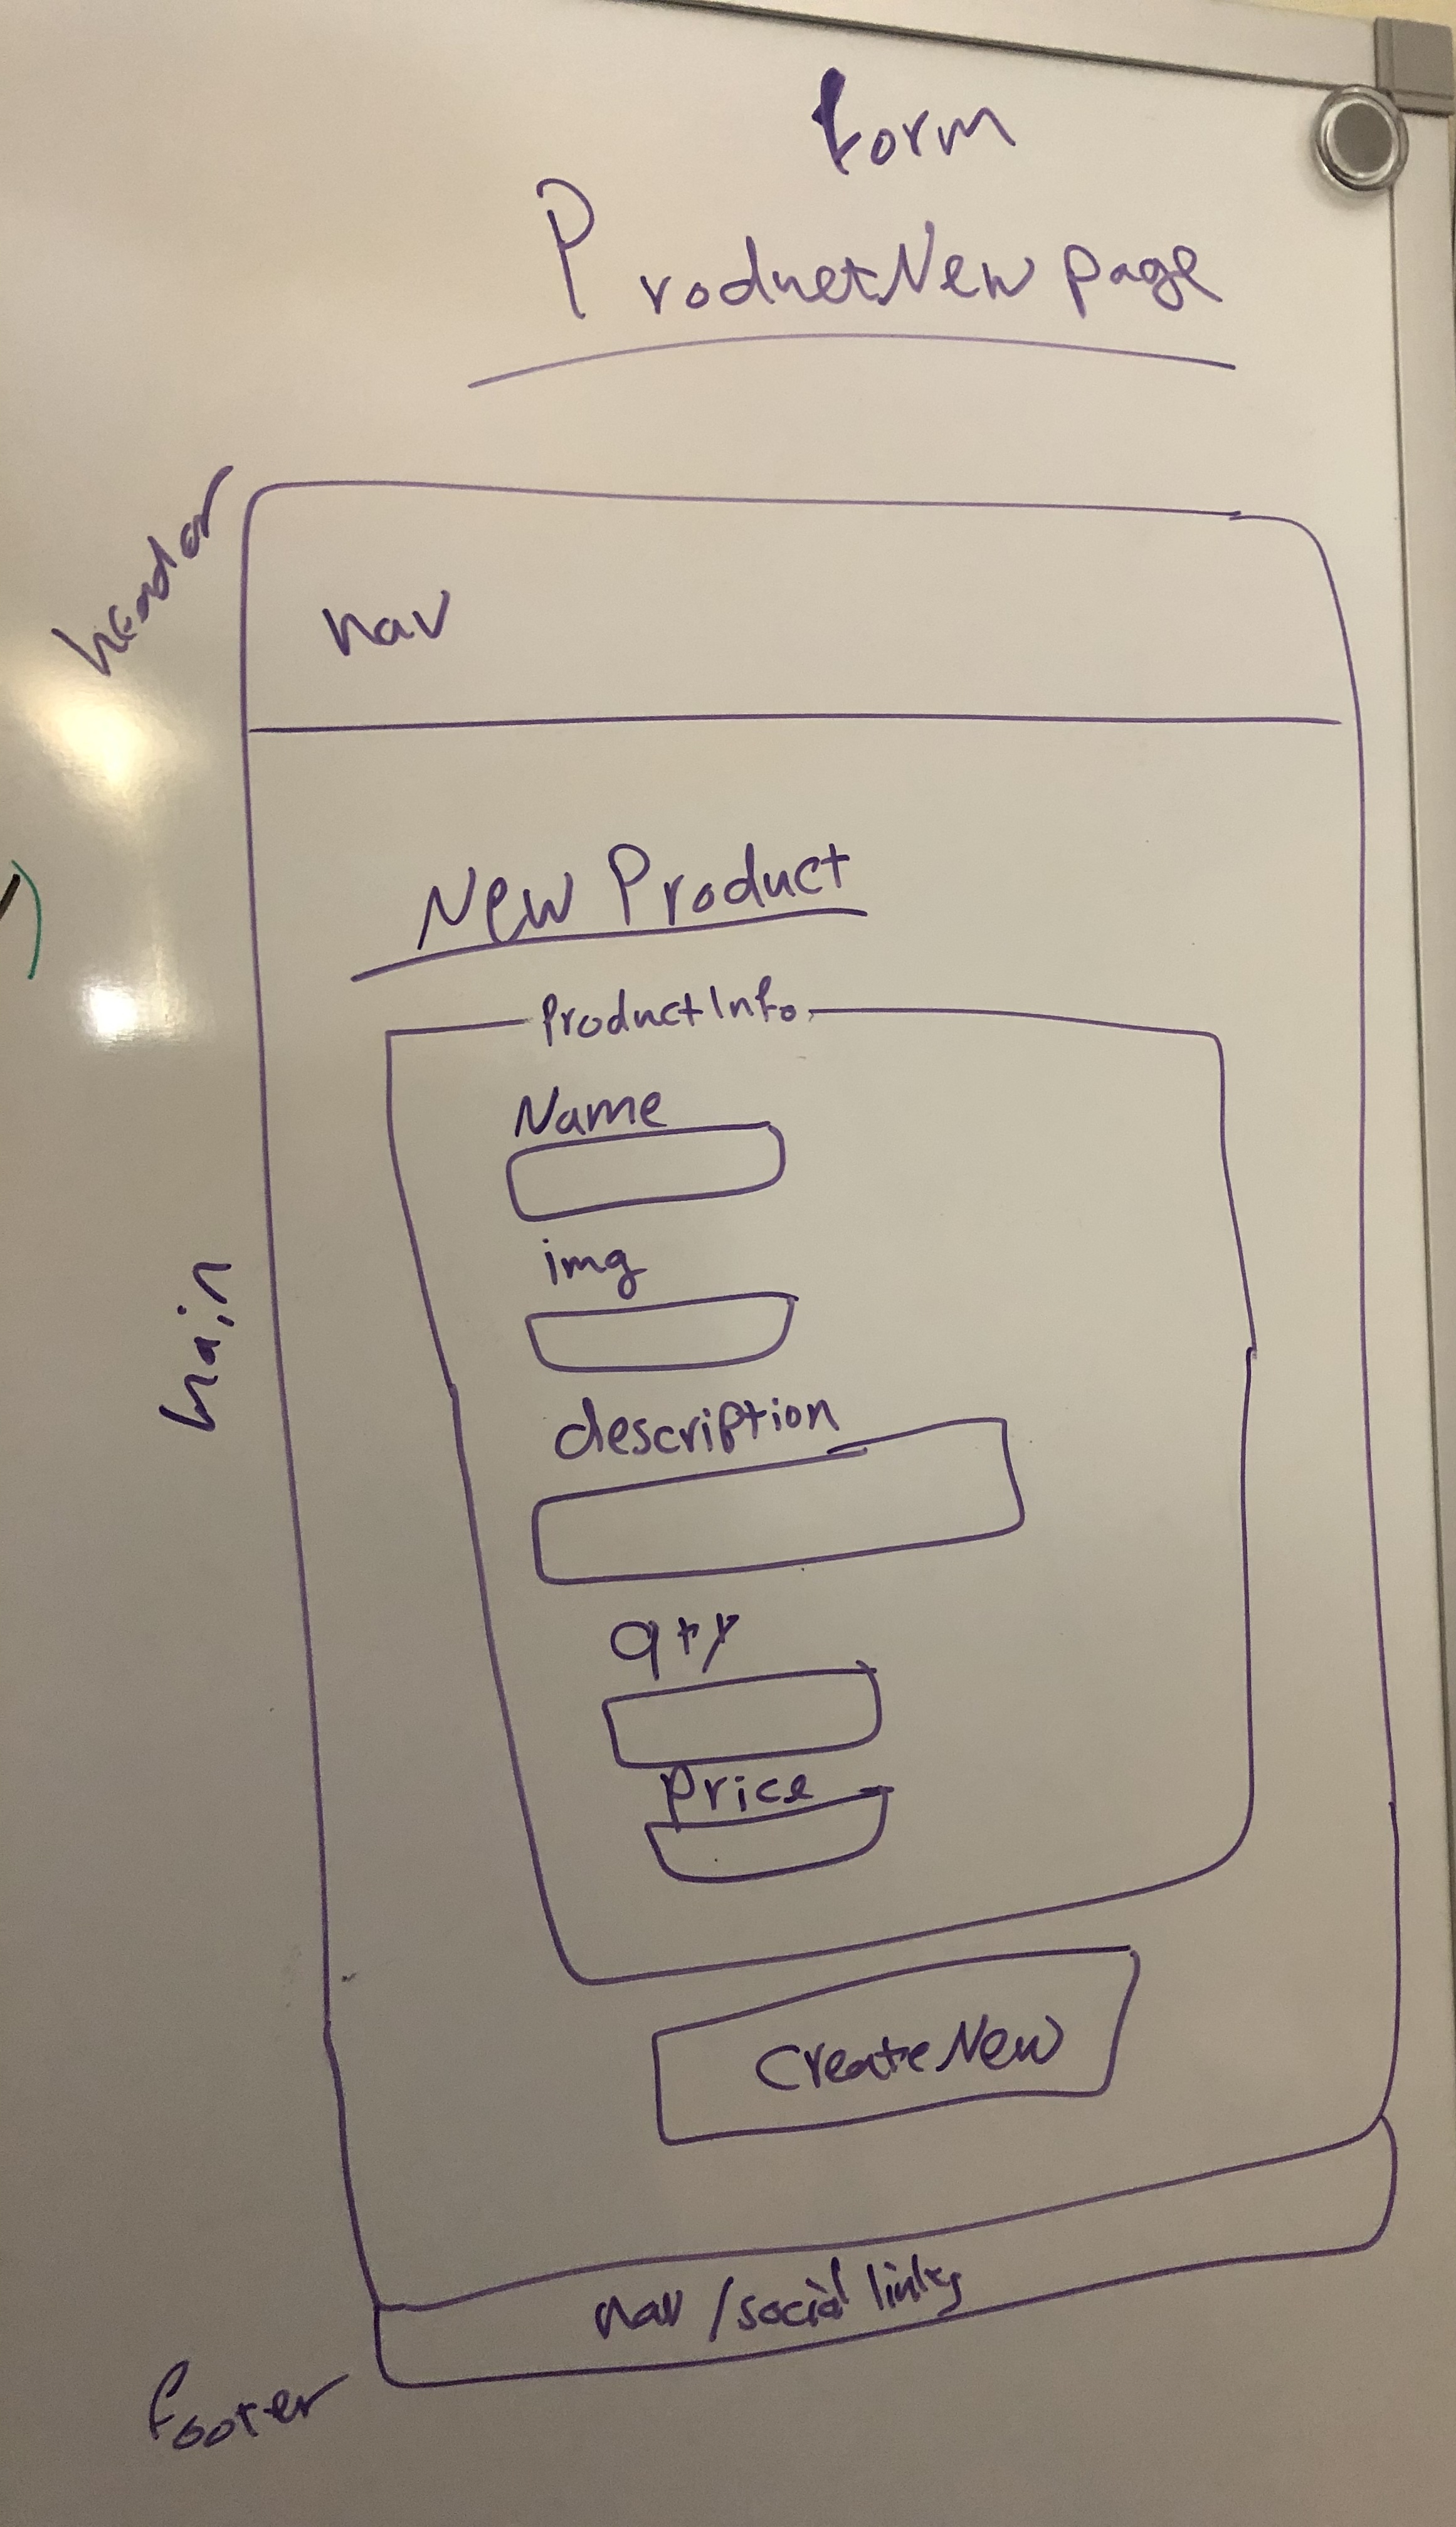 form
ProductNew page
header
nav
New Product
ProductInfo
Name
img
main
description
qty
Price
Create New
nav / social links
footer